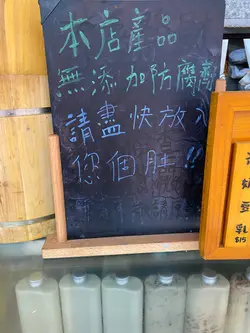 本店產品
無添加防腐劑
請盡快放入
您個肚!!
乳
$15